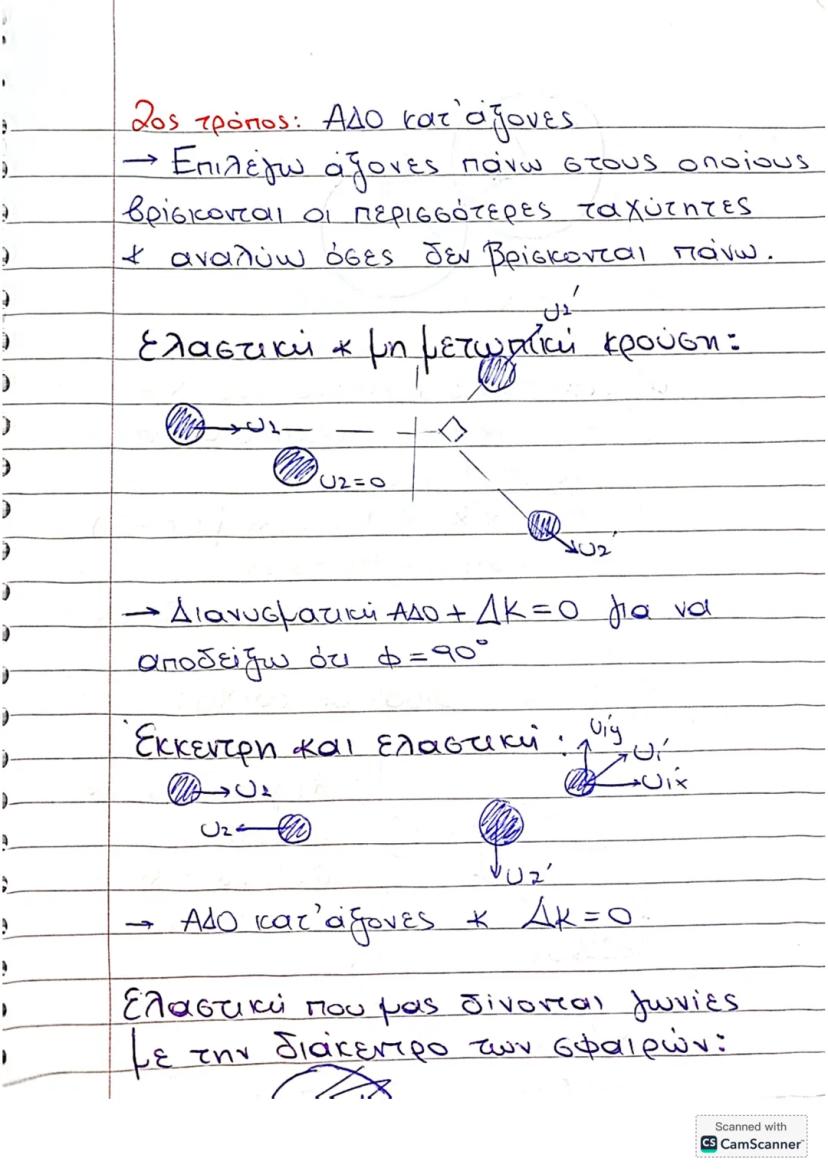 2ος τρόπος: ΑΔΟ κατ' άξονες
→ Επιλέγω άξονες πάνω στους οποίους
βρίσκονται οι περισσότερες ταχύτητες
+ αναλύω όσες δεν βρίσκονται πάνω.
Ελαστική + μη μετωπική κρούση:
υ1'
υ1
υ2=0
υ2'
→ Διανυσματική ΑΔΟ + ΔΚ=0 για να
αποδείξω ότι φ=90°
Έκκεντρη και ελαστική:
υ1'y
υ1'
υ1'x
υ1
υ2
υ2'
→ ΑΔΟ κατ' άξονες + ΔΚ=0
Ελαστική που μας δίνονται γωνίες
με την διάκεντρο των σφαιρών:
Scanned with
CS CamScanner